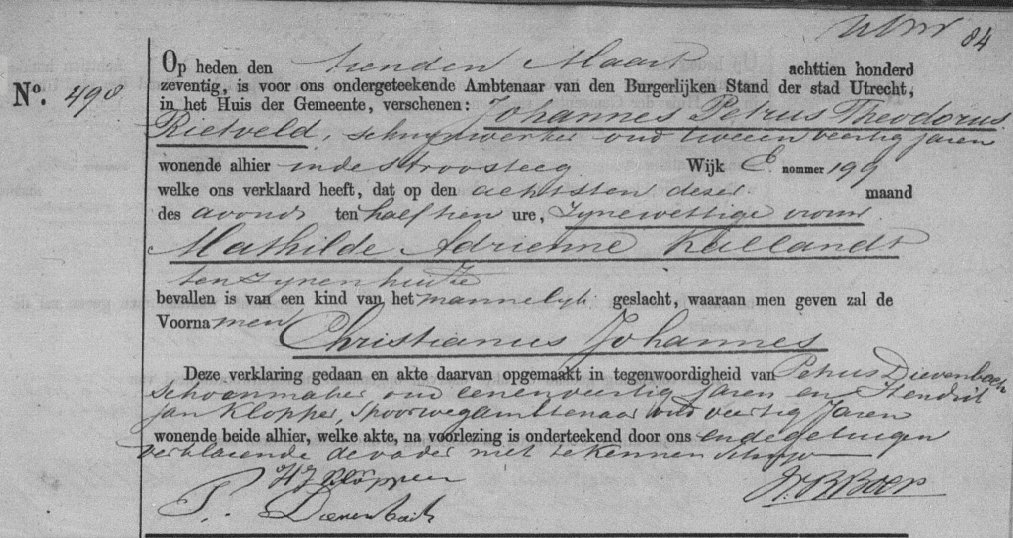 84
Op heden den tienden Maart achttien honderd
No. 490 zeventig, is voor ons ondergeteekende Ambtenaar van den Burgerlijken Stand der stad Utrecht,
in het Huis der Gemeente, verschenen: Johannes Petrus Theodorus
Rietveld, schrijnwerker oud tweeenveertig jaren
wonende alhier in de Stroosteeg Wijk E. nommer 199
welke ons verklaard heeft, dat op den achtsten dezer maand
des avonds ten half tien ure, zyne wettige vrouw
Mathilde Adrienne Kallandt
ten zynen huize
bevallen is van een kind van het mannelyk geslacht, waaraan men geven zal de
Voornamen Christianus Johannes
Deze verklaring gedaan en akte daarvan opgemaakt in tegenwoordigheid van Petrus Dievenbach
schoenmaker oud eenenveertig jaren en Hendrik
Jan Klopper, spoorwegambtenaar oud veertig jaren
wonende beide alhier, welke akte, na voorlezing is onderteekend door ons en de getuigen
verklarende de vader niet te kennen schryven
HJ Klopper
P. Dievenbach